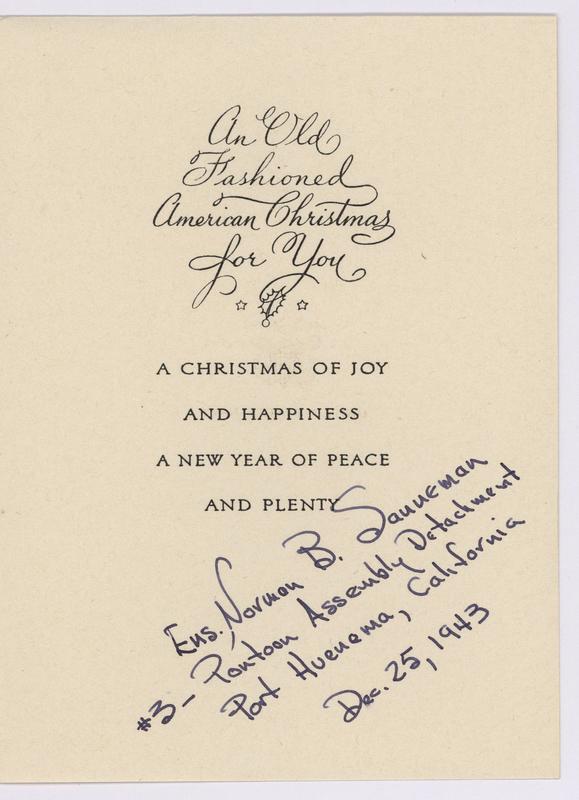 An Old
Fashioned
American Christmas
for You
A CHRISTMAS OF JOY
AND HAPPINESS
A NEW YEAR OF PEACE
AND PLENTY
Ens. Norman B. Sanneman
#3- Pontoon Assembly Detachment
Port Huenema, California
Dec. 25, 1943